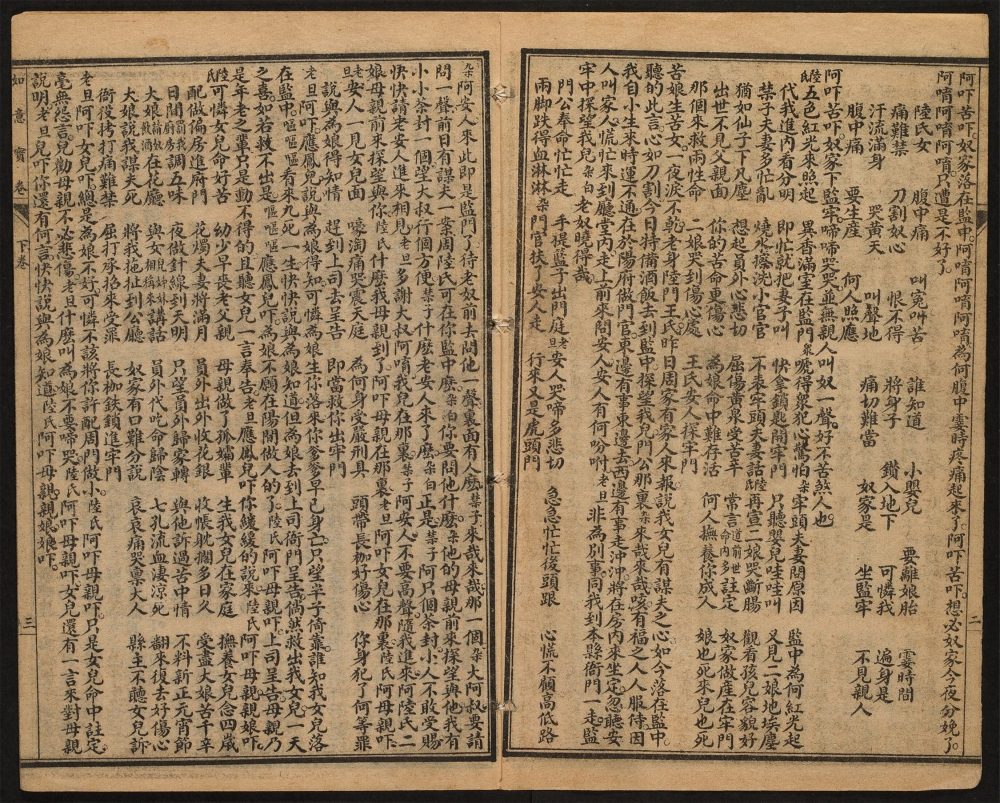 阿吓苦吓奴家落在監中阿唷阿唷阿唷為何腹中霎時疼痛起來了阿吓苦吓想必奴家今夜分娩了
阿唷阿唷阿唷只遭是不好了
陸氏女 腹中痛 叫冤叫苦 誰知道 小嬰兒 要離娘胎
痛難禁 刀割奴心 恨不得 將身子 鑽入地下 霎時間
汗流滿身 哭黃天 叫聲地 痛切難當 可憐我 遍身是
腹中痛 要生產 何人照應 奴家是 坐監牢 不見親人
阿吓苦吓奴家下監牢啼啼哭哭並無親人叫奴一聲好不苦煞人也
陸氏五色紅光來照起 異香滿室在監門 衆唬得衆犯心驚怕 牢頭夫妻問原因 監中為何紅光起
代我進內看分明 即忙就把妻子叫 快拿鎖匙開牢門 只聽嬰兒哇哇叫 又見二娘地埃塵
禁子夫妻多忙亂 燒水擦洗小官官 不表牢頭夫妻話 陸氏再宣二娘哭斷腸 觀看孩兒容貌好
猶如仙子下凡塵 想起員外心悲切 屈傷黃泉受苦辛 常言道前世命內多註定 奴家做產在牢門
出世不見父親面 你的苦命更傷心 為娘命中難存活 何人撫養你成人 娘也死來兒也死
那個來救兩性命 二娘哭到傷心處 王氏安人探牢門
苦娘生苦女一夜淚不乾老身陸門王氏昨日周家有人來報說我女兒有謀夫之心如今落在監中
聽的此言心如刀割今日持備酒飯去到監中探望我兒門公那裏來哉來哉該有福之人人服侍因
我自小生來時運不通在於陽府做門官東邊有事東邊去西邊有事走冲冲將在房內來坐定忽聽安
人叫家人慌忙來到廳堂內走上前來問安人安人有何吩咐老旦非為別事同我到本縣衙門一走監
牢中探望我兒白老奴曉得哉
門公奉命忙忙走 手提籃子出門庭 老旦安人哭啼多悲切 急急忙忙後頭跟 心慌不顧高低路
兩脚跌得血淋淋 門官扶了安人走 行來又是虎頭門
阿安人來此即是監門了待老奴前去問他一聲裏面有人麽禁子來哉來哉那一個大阿叔要請
問一聲前日有謀夫一案周陸氏可在你監中麽白你要問他什麽他的母親前來探望與他我有
小小茶封一個望大叔行個方便禁子什麽老安人來了麽白正是禁子阿只個茶封小人不敢受賜
快快請老安人進來相見老旦多謝大叔阿唷我兒在那裏禁子阿安人不要高聲隨我進來阿陸氏二
娘母親前來探望與你陸氏什麽我母親到了阿吓母親在那裏老旦阿吓女兒在那裏陸氏阿母親吓
老旦安人一見女兒面 嚎淘痛哭震天庭 為何身受嚴刑具 頭帶長枷好傷心 你身犯了何等罪
說與為娘得知情 趕到上司去呈告 即當救你出牢門
老旦阿吓應鳳兒說與為娘得知可憐為娘生你落來你爹爹早已身亡只望半子倚靠誰知我女兒落
在監中嘔嘔嘔看來九死一生快快說與為娘知道但為娘去到上司衙門呈告倘然救出我女兒一天
之喜如若救不出是嘔嘔嘔應鳳兒吓為娘不願在陽間做人的了陸氏阿吓母親吓上司呈告母親乃
是年老之輩只是動不得的且聽女兒一言奉告老旦應鳳兒吓你緩緩的說來陸氏阿吓母親親娘吓
陸氏可憐女兒命好苦 幼少早喪老父親 母親做了孤孀輩 生我女兒在家庭 撫養女兒念四歲
配做偏房進府門 花燭夫妻將滿月 員外出外收花銀 收帳躭擱多日久 受盡大娘苦千辛
日間廚房調五味 夜做針線到天明 只望員外歸家轉 與他訴過苦中情 不料新正元宵節
大娘請奴飲酒在花廳 與女相稱姊妹來講話 員外代吃命歸陰 七孔流血淒涼死 翻來復去好傷心
大娘說我謀夫死 將我拖扯到公廳 奴家有口難分說 哀哀痛哭稟大人 縣主不聽女兒訴
衙役拷打痛難禁 屈打承招來受罪 長枷鉄鎖進牢門
老旦阿吓女兒吓總是為娘不好可憐不該將你許配周門做小陸氏阿吓母親吓只是女兒命中註定
毫無怨言兒勸母親不必悲傷老旦什麽叫為娘不要啼哭陸氏阿吓母親吓女兒還有一言來對母親
說明老旦兒吓你還有何言快快說與為娘知道陸氏阿吓母親親娘吓
如意寶卷 下卷 三
二